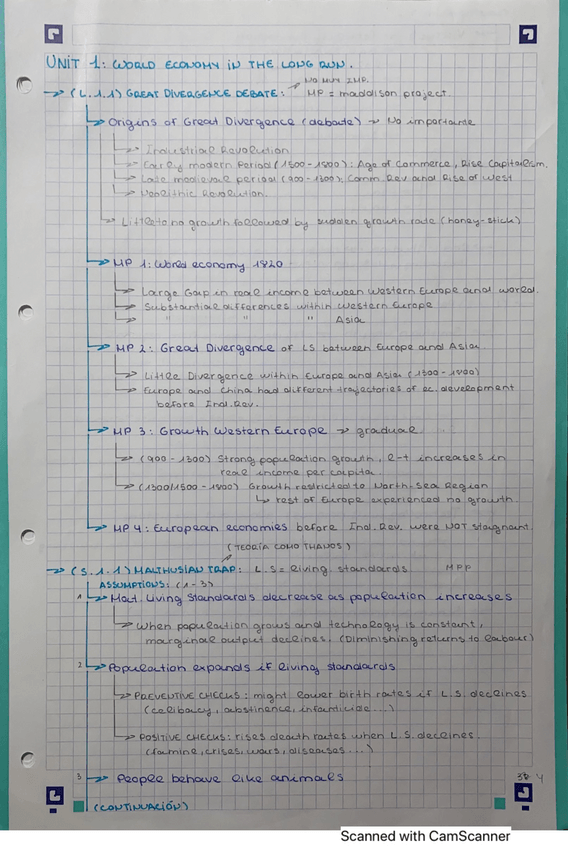 UNIT 1: WORLD ECONOMY IN THE LONG RUN.
NO MUY IMP.
→ (L.1.1) GREAT DIVERGENCE DEBATE: MP = maddison project.
→ Origins of Great Divergence (debate) → No importante
→ Industrial Revolution
→ Early modern Period (1500-1800): Age of Commerce, Rise Capitalism.
→ Late medieval period (900-1300): Comm. Rev and Rise of West
→ Neolithic Revolution.
→ Little to no growth followed by sudden growth rate (honey-stick)
→ MP 1: World economy 1820
→ Large Gap in real income between Western Europe and world.
→ Substantial differences within Western Europe
→ " " " Asia
→ MP 2: Great Divergence of LS between Europe and Asia
→ Little Divergence within Europe and Asia (1300-1800)
→ Europe and China had different trajectories of ec. development
before Ind. Rev.
→ MP 3: Growth Western Europe → gradual
→ (900-1300) Strong population growth, l-t increases in
real income per capita
→ (1300/1500-1800) Growth restricted to North-Sea Region
↳ rest of Europe experienced no growth.
→ MP 4: European economies before Ind. Rev. were NOT stagnant.
(TEORÍA COMO THANOS)
→ (S.1.1) MALTHUSIAN TRAP: L.S = living standards MPP
ASSUMPTIONS: (1-3)
1 → Mat. Living Standards decrease as population increases
→ When population grows and technology is constant,
marginal output declines. (Diminishing returns to labour)
2 → Population expands if living standards
→ PREVENTIVE CHECKS: might lower birth rates if L.S. declines
(celibacy, abstinence, infanticide...)
→ POSITIVE CHECKS: rises death rates when L.S. declines.
(famine, crises, wars, diseases...)
3 → People behave like animals
(CONTINUACIÓN)
Scanned with CamScanner